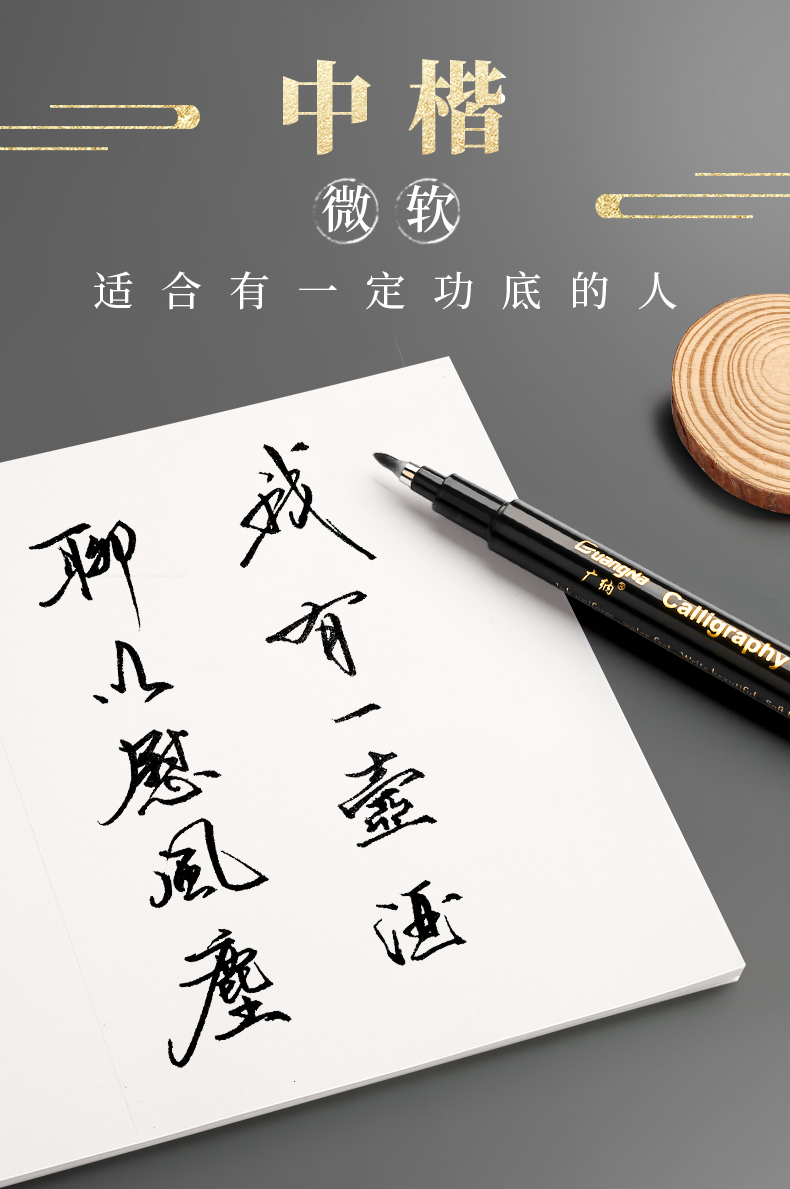 中楷
微软
适合有一定功底的人
我有一壶酒
聊以慰風塵
GuangNa
广纳®
Calligraphy